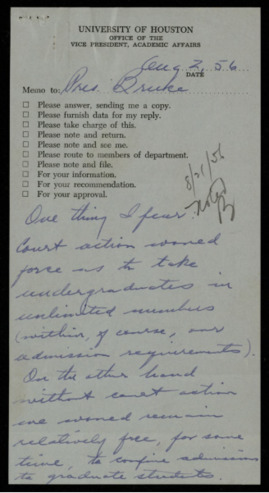 UNIVERSITY OF HOUSTON
OFFICE OF THE
VICE PRESIDENT, ACADEMIC AFFAIRS
Aug 2, 56
DATE
Memo to: Pres. Bruce
☐ Please answer, sending me a copy.
☐ Please furnish data for my reply.
☐ Please take charge of this.
☐ Please note and return.
☐ Please note and see me.
☐ Please route to members of department.
☐ Please note and file.
☐ For your information.
☐ For your recommendation.
☐ For your approval.
8/21/56
Noted
One thing I fear.
Court action would
force us to take
undergraduates in
unlimited numbers
(within, of course, our
admission requirements).
On the other hand
without court action
we would remain
relatively free, for some
time, to confine admissions
to graduate students.